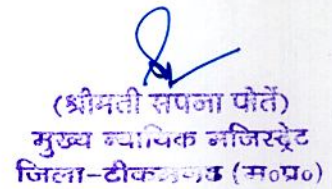 (श्रीमती सपना पोर्ते)
मुख्य न्यायिक मजिस्ट्रेट
जिला-टीकमगढ (म०प्र०)